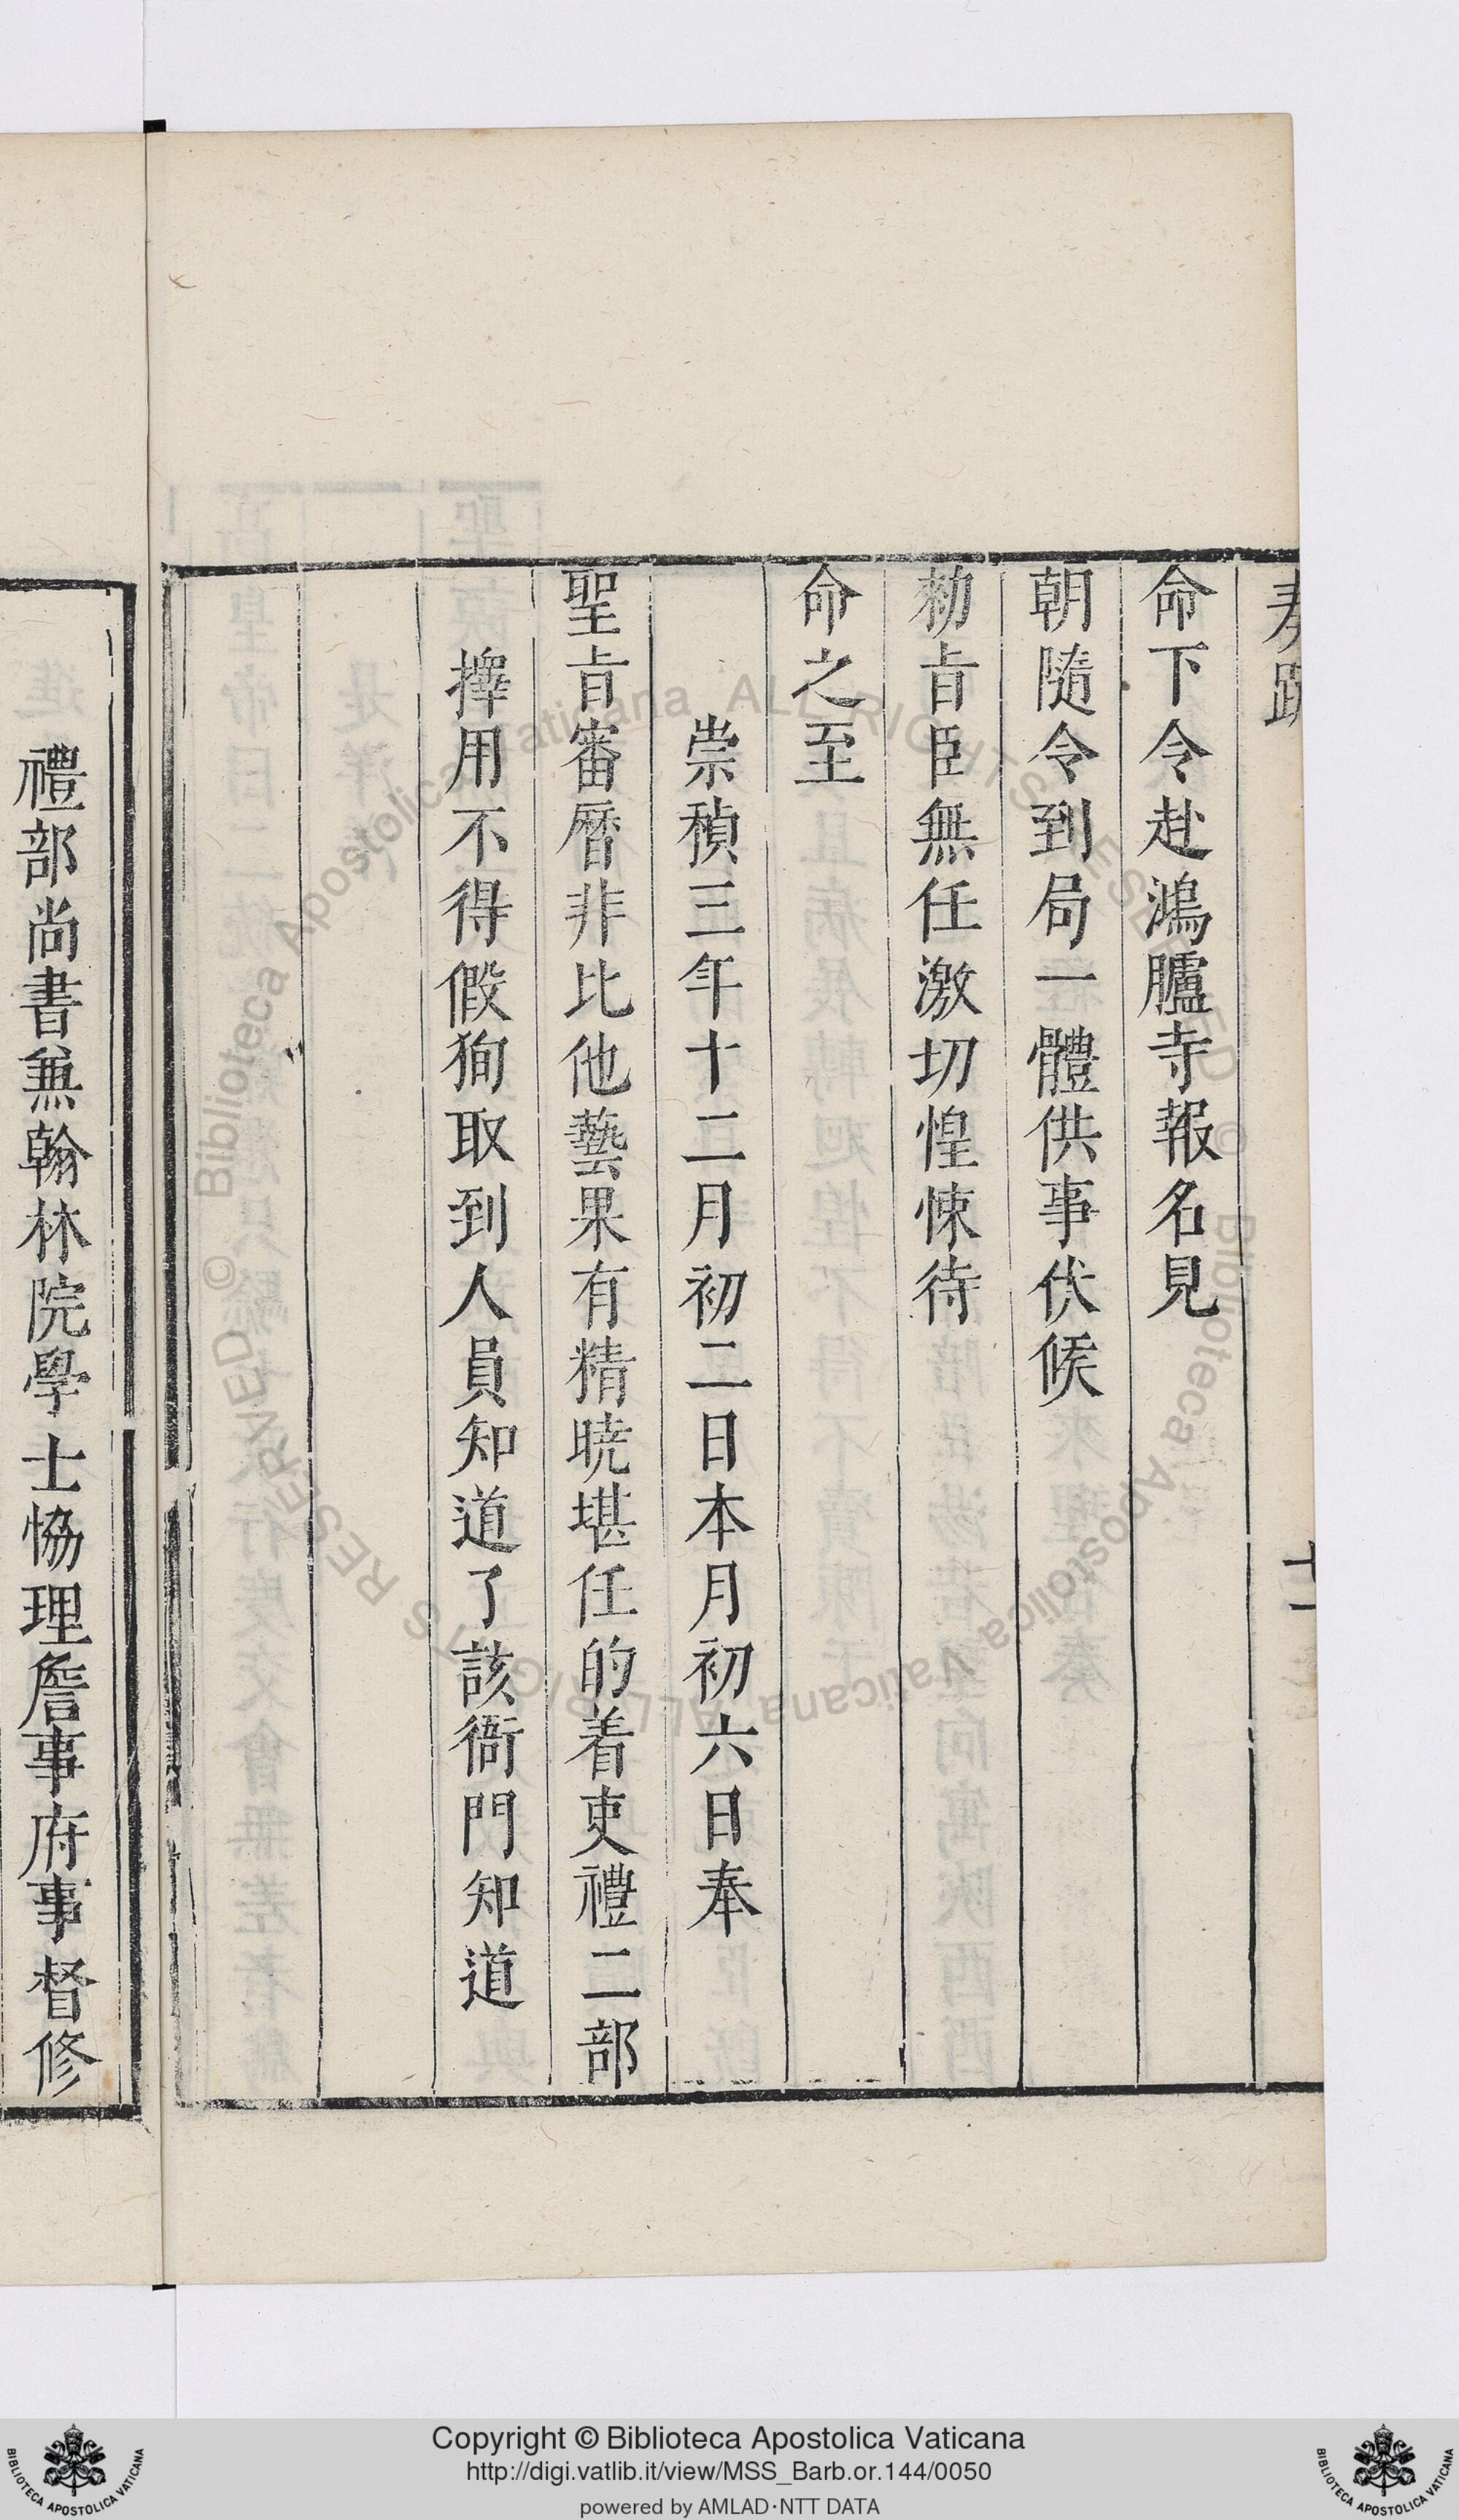 奏疏
十一
命下令赴鴻臚寺報名見
朝隨令到局一體供事伏候
勑旨臣無任激切惶悚待
命之至
崇禎三年十二月初二日本月初六日奉
聖旨審曆非比他藝果有精曉堪任的着吏禮二部
擇用不得假狥取到人員知道了該衙門知道
禮部尚書兼翰林院學士恊理詹事府事督修
Copyright © Biblioteca Apostolica Vaticana
http://digi.vatlib.it/view/MSS_Barb.or.144/0050
powered by AMLAD·NTT DATA
Biblioteca Apostolica Vaticana ALL RIGHTS RESERVED ©
Biblioteca Apostolica Vaticana ALL RIGHTS RESERVED ©
BIBLIOTECA APOSTOLICA VATICANA
BIBLIOTECA APOSTOLICA VATICANA